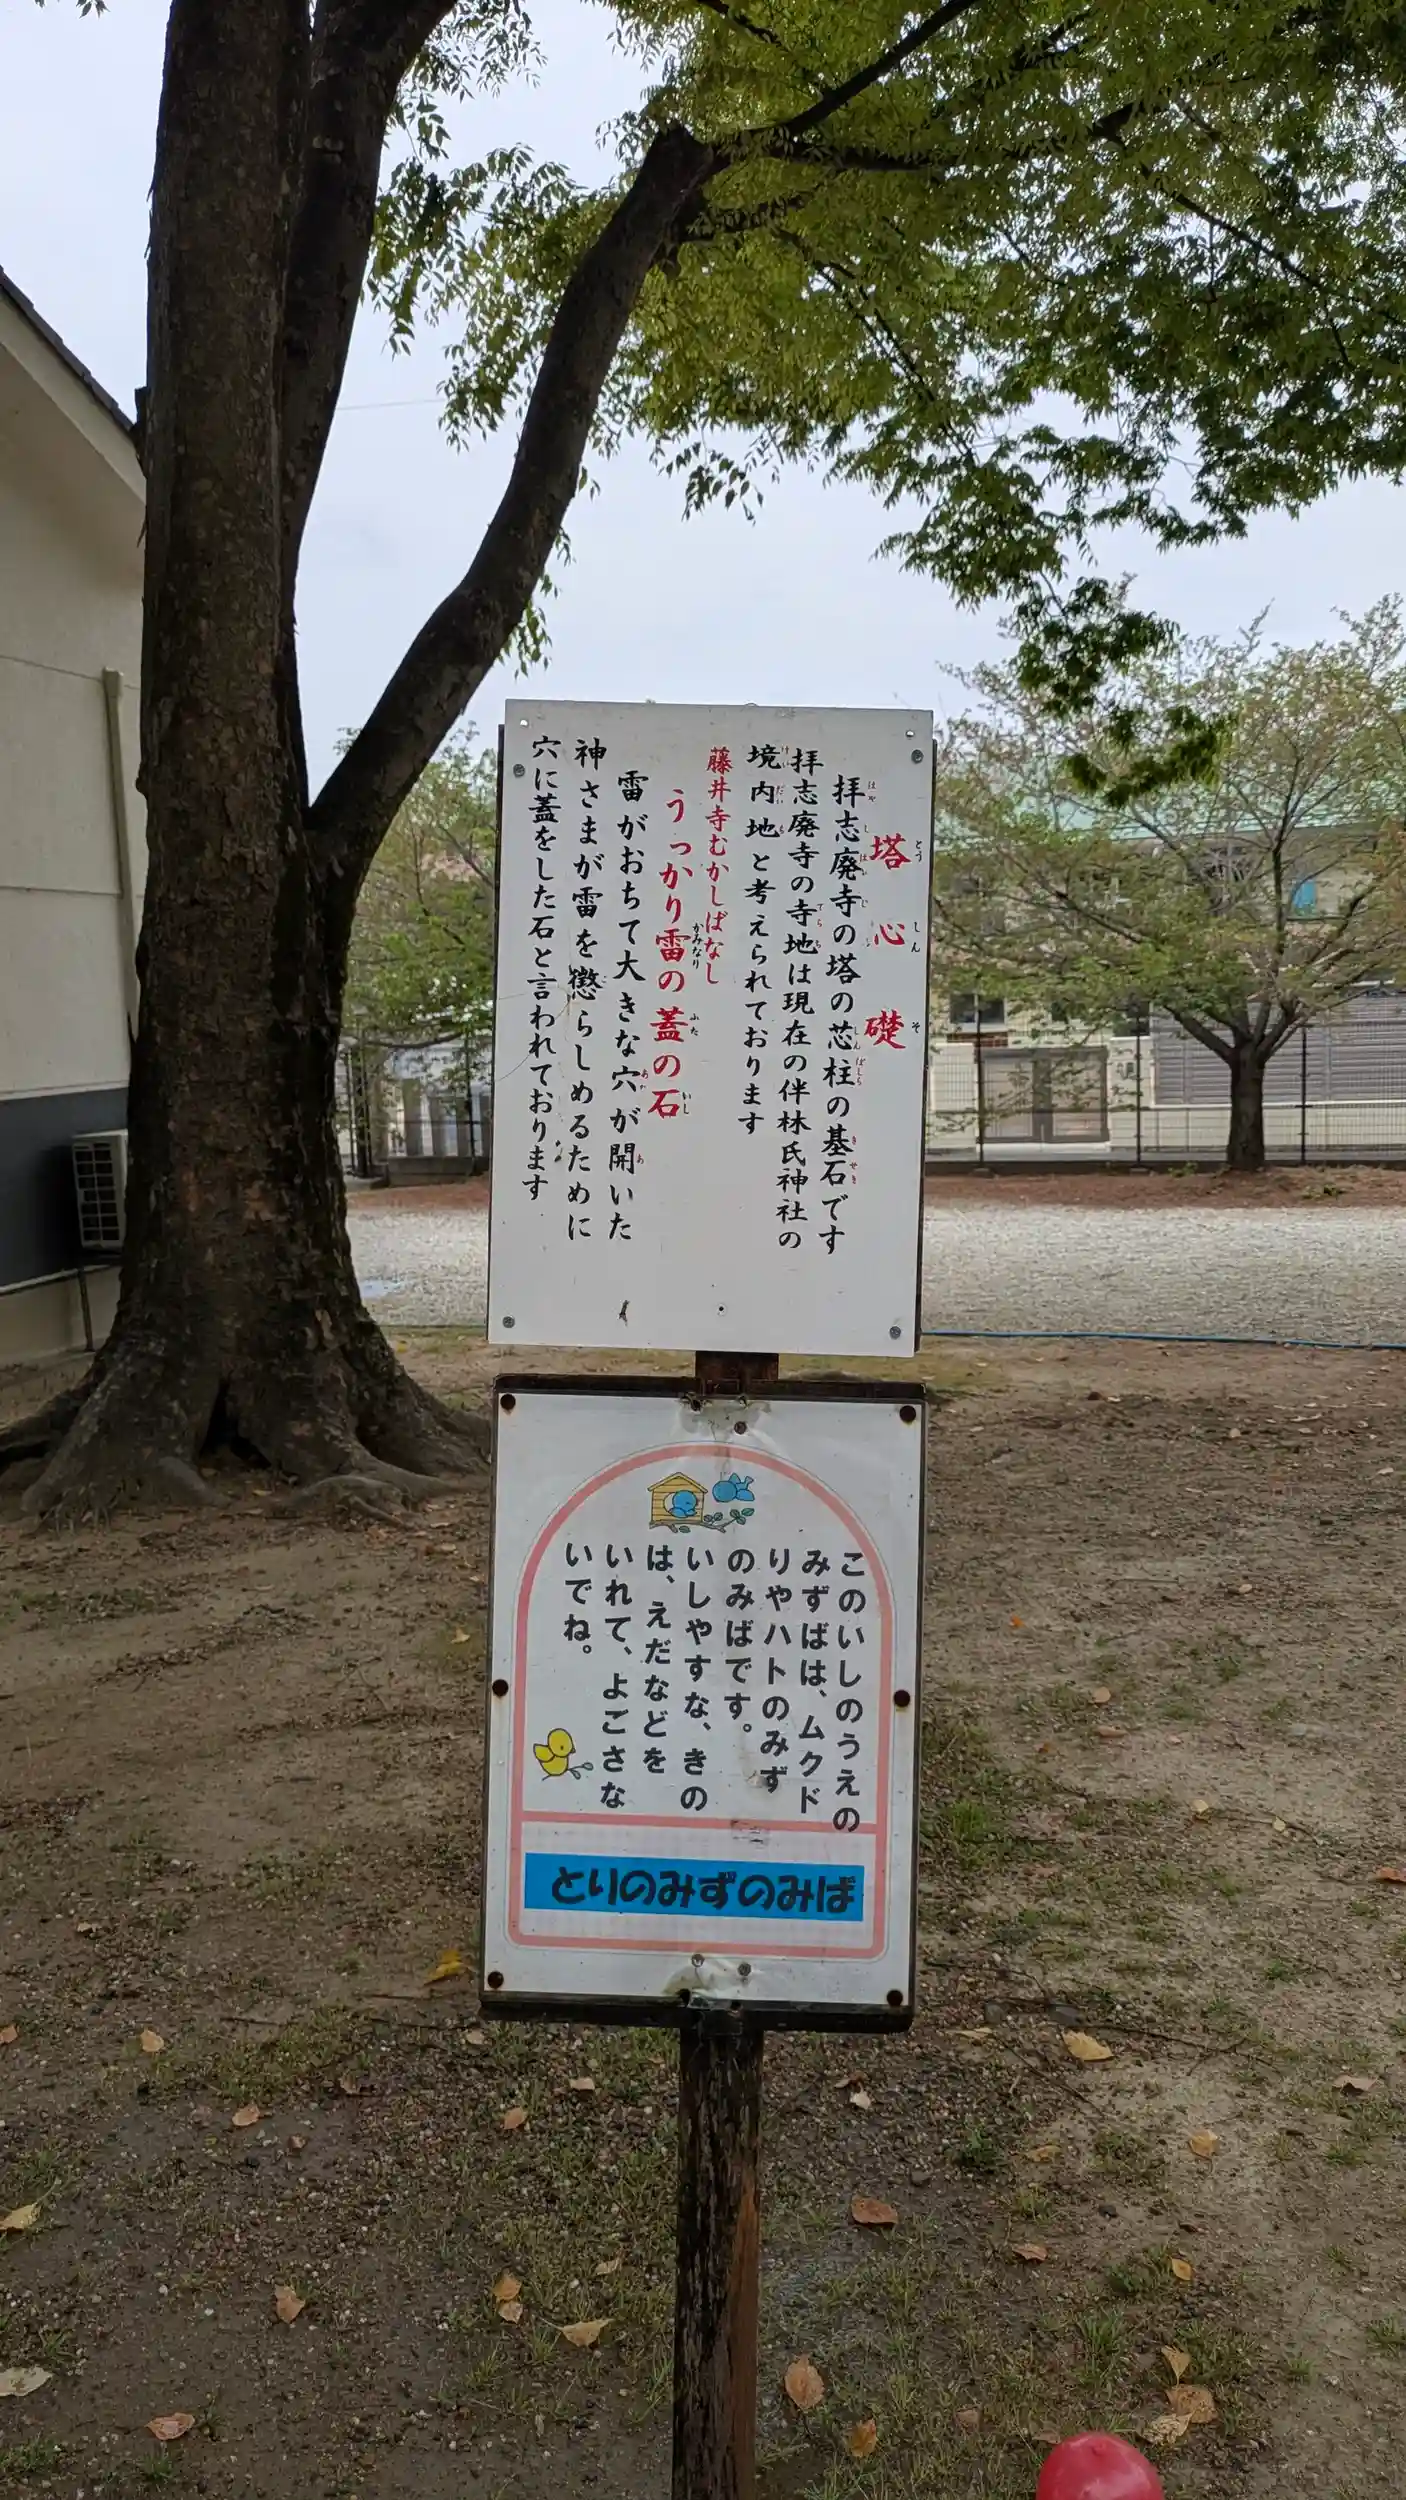 塔心礎
拝志廃寺の塔の芯柱の基石です
拝志廃寺の寺地は現在の伴林氏神社の
境内地と考えられております
藤井寺むかしばなし
うっかり雷の蓋の石
雷がおちて大きな穴が開いた
神さまが雷を懲らしめるために
穴に蓋をした石と言われております
このいしのうえの
みずばは、ムクド
りやハトのみず
のみばです。
いしやすな、きの
は、えだなどを
いれて、よごさな
いでね。
とりのみずのみば